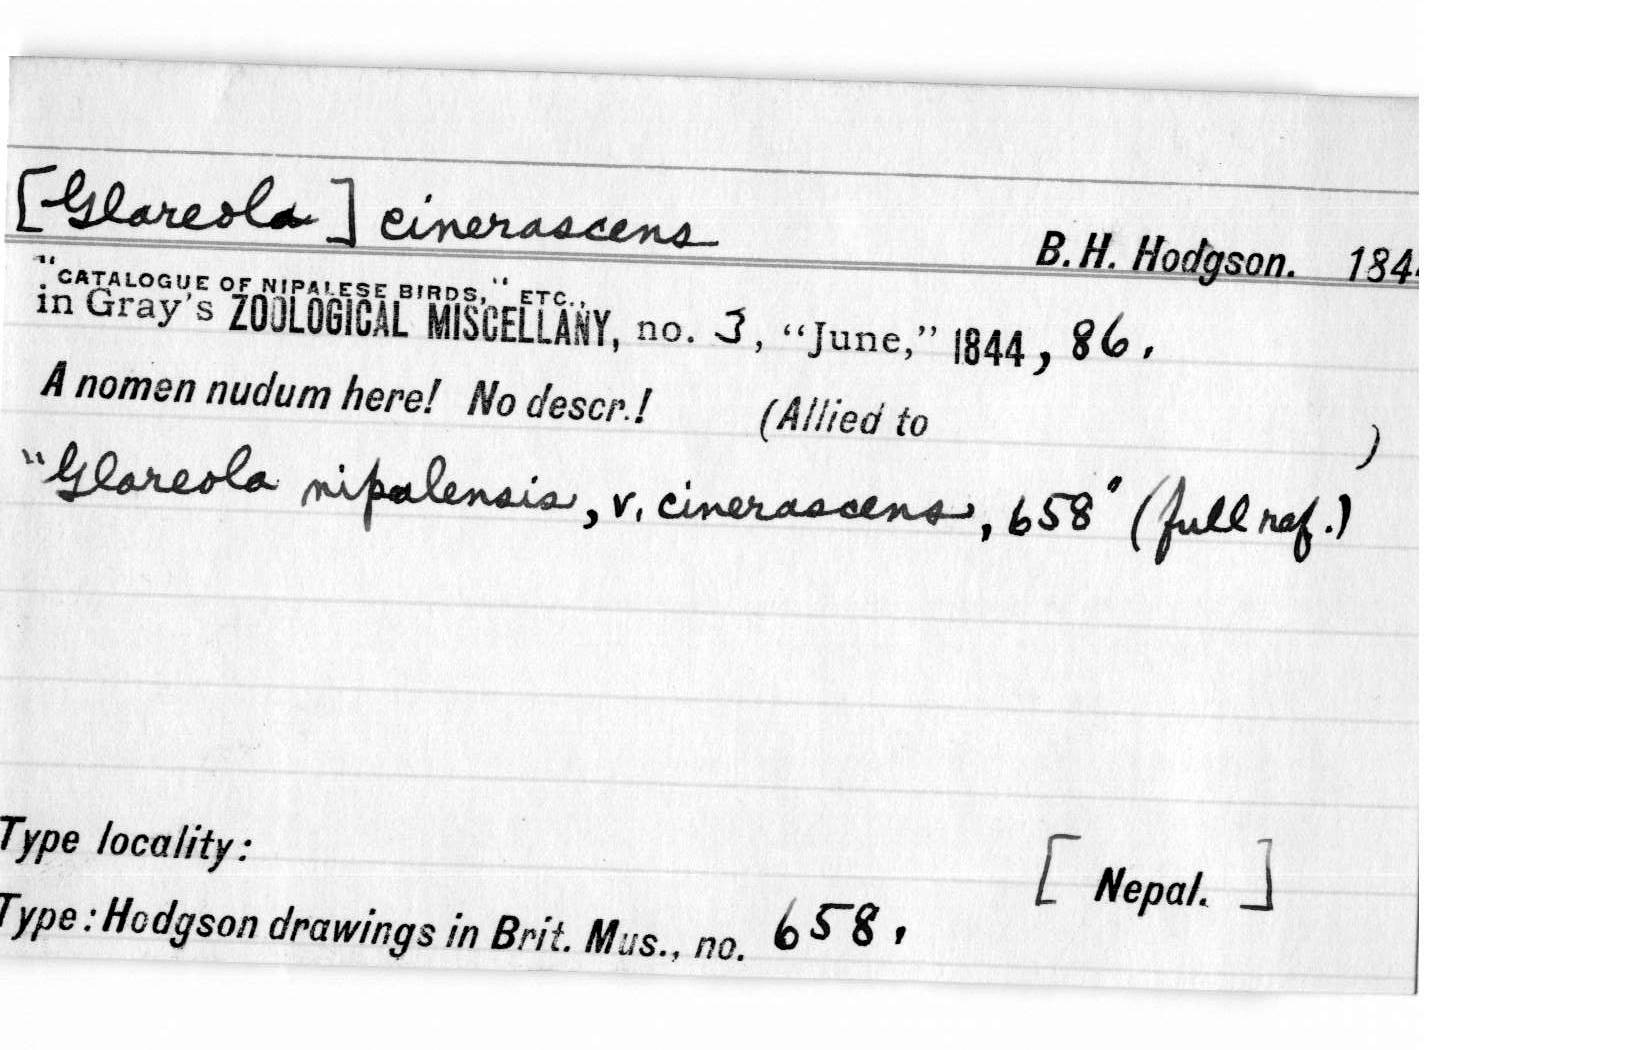 [Glareola] cinerascens
B. H. Hodgson. 184
"CATALOGUE OF NIPALESE BIRDS," ETC.,
in Gray's ZOOLOGICAL MISCELLANY, no. 3, "June," 1844, 86.
A nomen nudum here! No descr.! (Allied to )
"Glareola nipalensis, v. cinerascens, 658" (full ref.)
Type locality: [Nepal.]
Type: Hodgson drawings in Brit. Mus., no. 658.